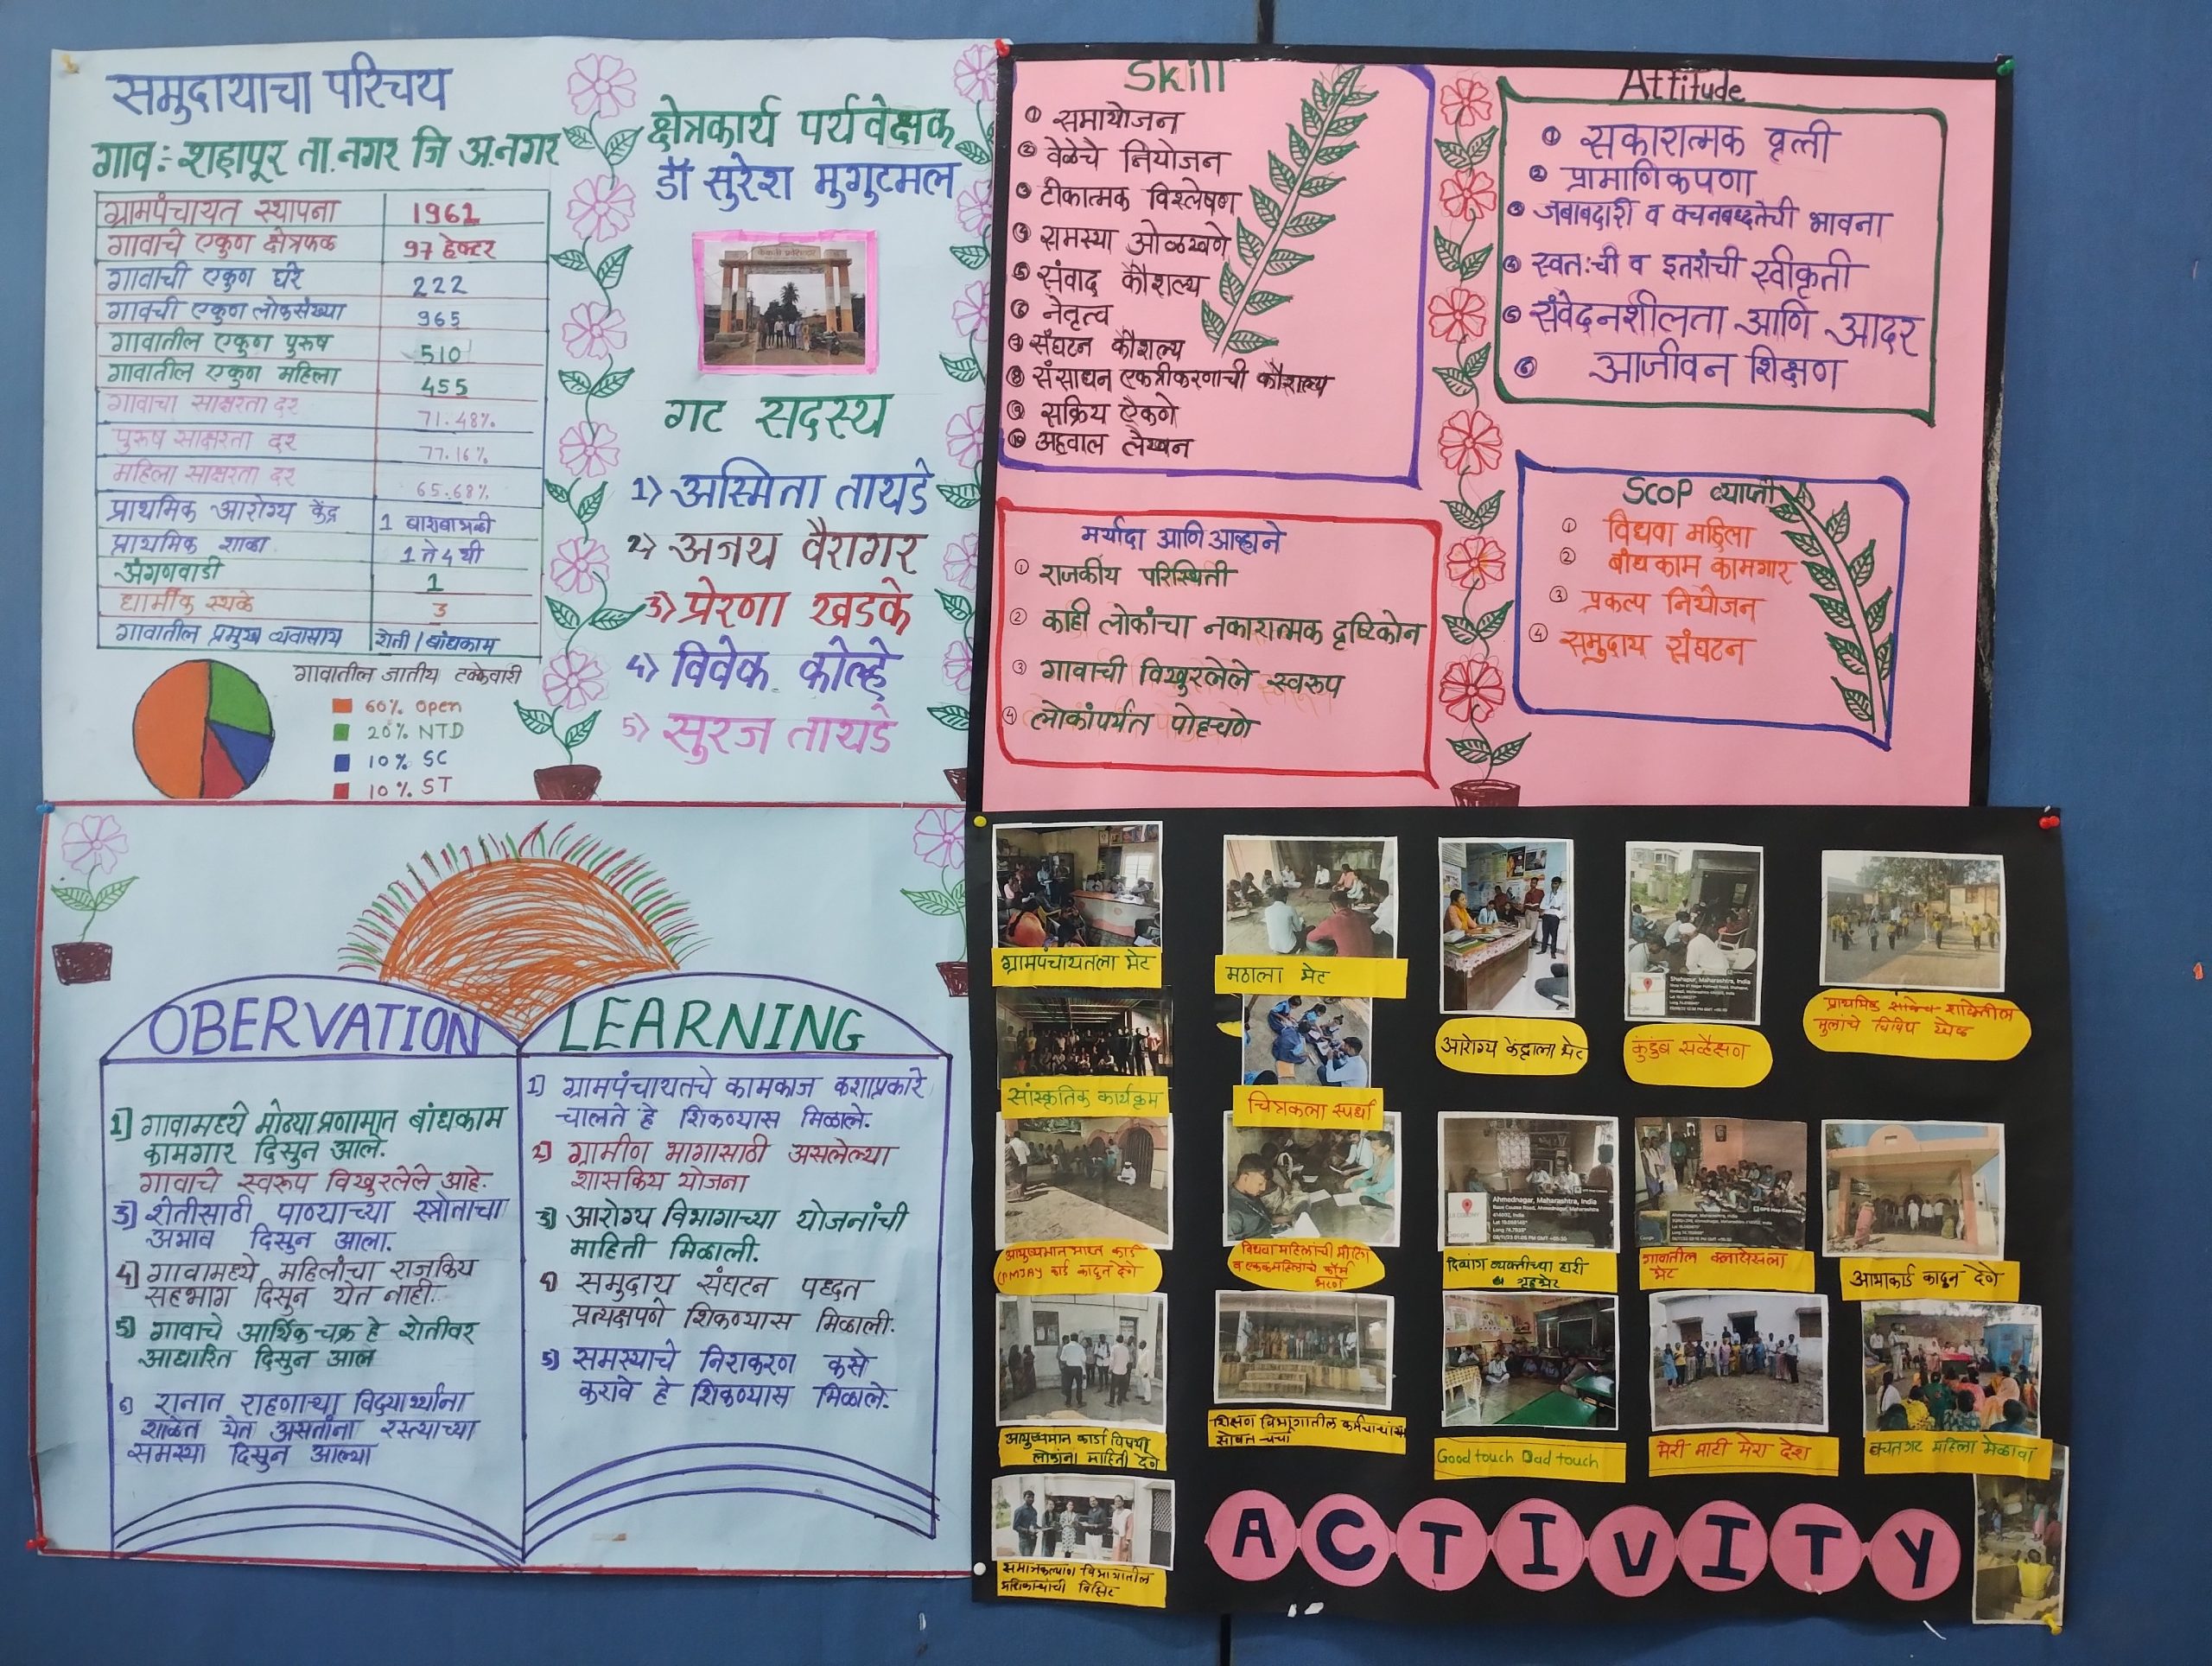 समुदायाचा परिचय
गाव:- शहापूर ता. नगर जि अ.नगर
ग्रामपंचायत स्थापना 1961
गावाचे एकुण क्षेत्रफळ 97 हेक्टर
गावाची एकुण घरे 222
गावची एकुण लोकसंख्या 965
गावातील एकुण पुरुष 510
गावातील एकुण महिला 455
गावाचा साक्षरता दर 71.48%
पुरुष साक्षरता दर 77.16%
महिला साक्षरता दर 65.68%
प्राथमिक आरोग्य केंद्र 1
प्राथमिक शाळा 1 ते 4 थी
अंगणवाडी 1
धार्मीक स्थळे 3
गावातील प्रमुख व्यवासाय शेती / बांधकाम
गावातील जातीय टक्केवारी
60% Open
20% NTD
10% SC
10% ST
क्षेत्रकार्य पर्यवेक्षक
डॉ सुरेश मुगुटमल
गट सदस्य
1) अस्मिता तायडे
2) अजय वैरागर
3) प्रेरणा खडके
4) विवेक कोल्हे
5) सुरज तायडे
Skill
① समायोजन
② वेळेचे नियोजन
③ टीकात्मक विश्लेषण
④ समस्या ओळखणे
⑤ संवाद कौशल्य
⑥ नेतृत्व
⑦ संघटन कौशल्य
⑧ संसाधन एकत्रीकरणाची कौशल्य
⑨ सक्रिय ऐकणे
⑩ अहवाल लेखन
मर्यादा आणि आव्हाने
① राजकीय परिस्थिती
② काही लोकांचा नकारात्मक दृष्टिकोन
③ गावाची विखुरलेले स्वरूप
④ लोकांपर्यंत पोहचणे
Attitude
① सकारात्मक वृत्ती
② प्रामाणिकपणा
③ जबाबदारी व वचनबध्दतेची भावना
④ स्वत:ची व इतरांची स्वीकृती
⑤ संवेदनशीलता आणि आदर
⑥ आजीवन शिक्षण
Scop व्याप्ती
① विधवा महिला
② बांधकाम कामगार
③ प्रकल्प नियोजन
④ समुदाय संघटन
OBERVATION
1) गावामध्ये मोठ्या प्रणामात बांधकाम
कामगार दिसुन आले.
गावाचे स्वरूप विखुरलेले आहे.
3) शेतीसाठी पाण्याच्या स्त्रोताचा
अभाव दिसुन आला.
4) गावामध्ये महिलांचा राजकिय
सहभाग दिसुन येत नाही.
5) गावाचे आर्थिक चक्र हे शेतीवर
आधारित दिसुन आल
6) रानात राहणाऱ्या विद्यार्थ्यांना
शाळेत येत असतांना रस्त्याच्या
समस्या दिसुन आल्या
LEARNING
1) ग्रामपंचायतचे कामकाज कशाप्रकारे
चालते हे शिकण्यास मिळाले.
2) ग्रामीण भागासाठी असलेल्या
शासकिय योजना
3) आरोग्य विभागाच्या योजनांची
माहिती मिळाली.
4) समुदाय संघटन पध्दत
प्रत्यक्षपणे शिकण्यास मिळाली.
5) समस्याचे निराकरण कसे
करावे हे शिकण्यास मिळाले.
ग्रामपंचायतला भेट
मठाला भेट
आरोग्य केंद्राला भेट
कुंटुंब सर्वेक्षण
प्राथमिक शाळेतील
मुलांचे विविध खेळ
सांस्कृतिक कार्यक्रम
चित्रकला स्पर्धा
आयुष्यमान भारत कार्ड
(PMJAY कार्ड काढुन देणे
विधवा महिलांची मिटिंग
व एकल महिलांचे फॉर्म
भरणे
Ahmednagar, Maharashtra, India
दिव्यांग व्यक्तीच्या घरी
गृहभेट
गावातील क्लासेसला
भेट
आभाकार्ड काढुन देणे
आयुष्यमान कार्डा विषयी
लोकांना माहिती देणे
शिक्षण विभागातील कर्मचाऱ्यांच्या
सोबत चर्चा
Good touch Dad touch
मेरी माटी मेरा देश
बचतगट महिला मेळावा
समाजकल्याण विभागातील
अधिकाऱ्यांची व्हिजिट
ACTIVITY